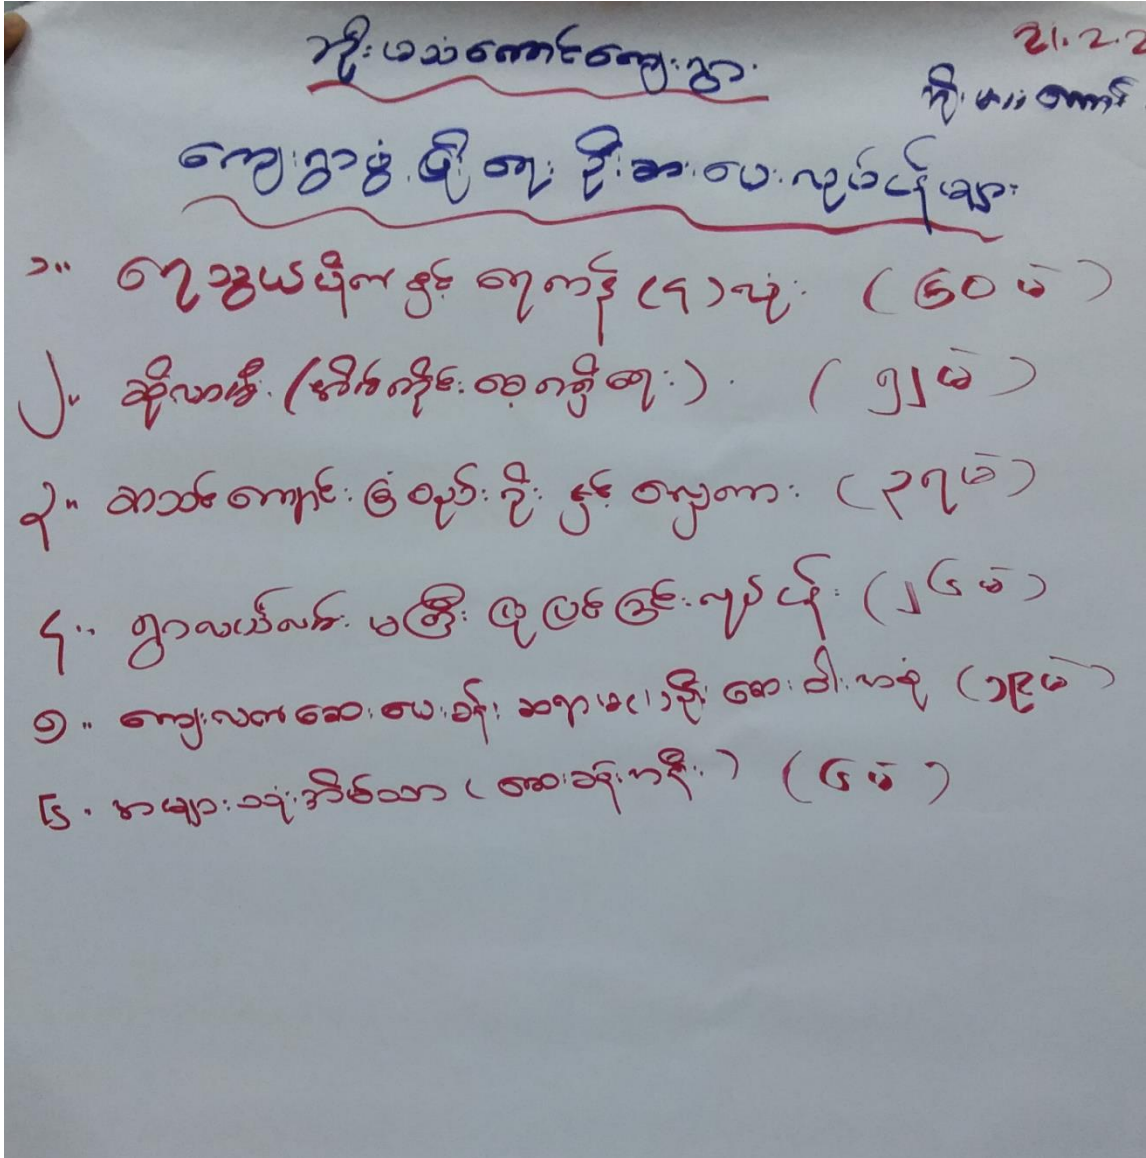 ဘိုးဖသံတောင်ကျေးရွာ
21.2.2
ကျေးရွာဖွံ့ဖြိုးရေး ဦးစားပေးလုပ်ငန်းများ
၁။ ရေသွယ်ပိုက်နှင့် ရေကန် (၄) လုံး (၆၀ မဲ)
၂။ ဆိုလာမီး (အိမ်တိုင်းစေ့ ရရှိရေး) (၅၂ မဲ)
၃။ စာသင်ကျောင်းခြံစည်းရိုး နှင့် လျှောတား (၃၇ မဲ)
၄။ ရွာလယ်လမ်းမကြီး ပြုပြင်ခြင်းလုပ်ငန်း (၂၆ မဲ)
၅။ ကျေးလက်ဆေးပေးခန်း ဆရာမ (၁) ဦး ဆေးဝါးအစုံ (၁၉ မဲ)
၆။ အများသုံးအိမ်သာ (ဆေးခန်းအနီး) (၆ မဲ)